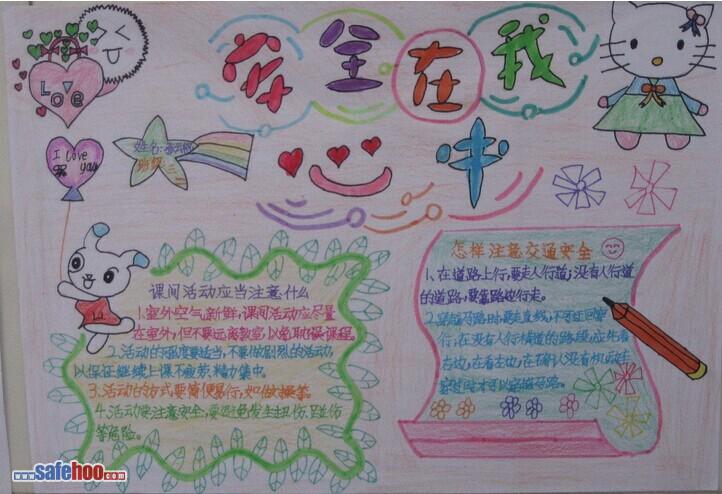 安全在我
心中
LOVE
I love
you
姓名:
班级:
课间活动应当注意什么
1.室外空气新鲜,课间活动应尽量
在室外,但不要远离教室,以免耽误课程。
2.活动的强度要适当,不要做剧烈的活动,
以保证继续上课不疲劳,精力集中。
3.活动的方式要简便易行,如做操等。
4.活动要注意安全,要避免发生扭伤、碰伤
等危险。
怎样注意交通安全
1、在道路上行,要走人行道;没有人行道
的道路,要靠路边行走。
2、穿越马路时,要走直线,不可迂回穿
行;在没有人行横道的路段,应先看
右边,在看左边,在确认没有机动车
才可以穿越马路。
www.safehoo.com